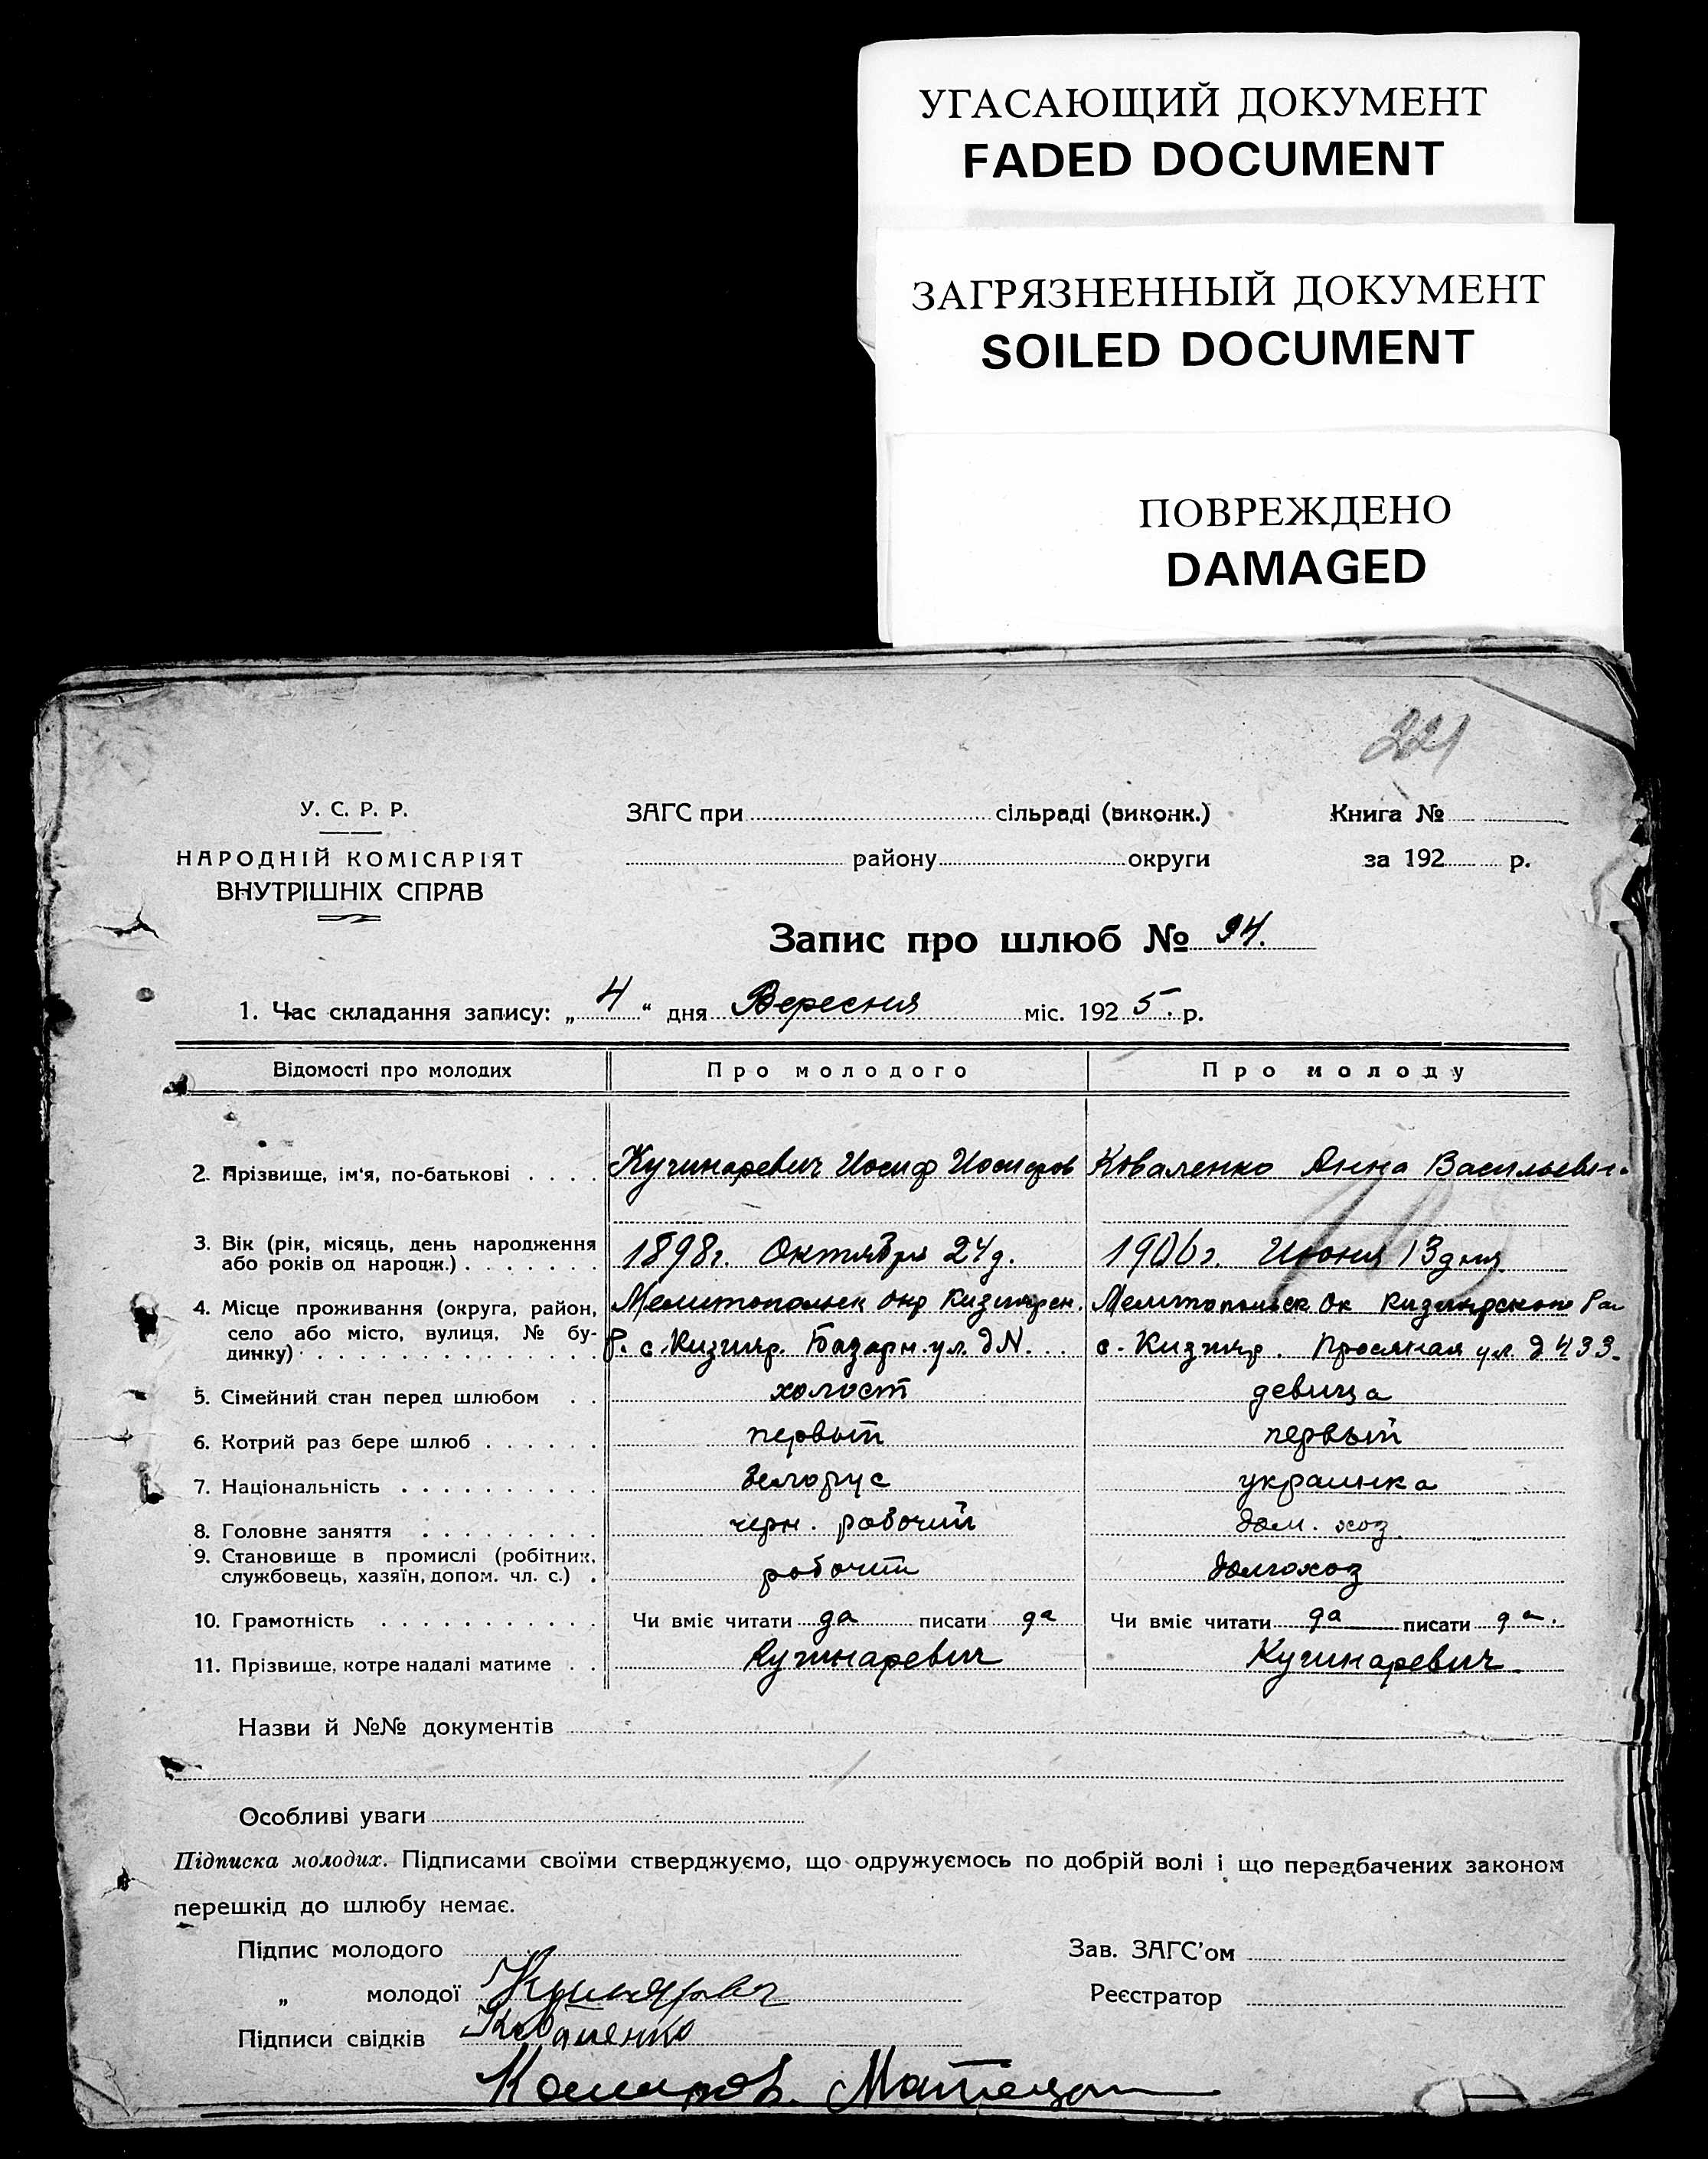 УГАСАЮЩИЙ ДОКУМЕНТ
FADED DOCUMENT
ЗАГРЯЗНЕННЫЙ ДОКУМЕНТ
SOILED DOCUMENT
ПОВРЕЖДЕНО
DAMAGED
221
У. С. Р. Р.
НАРОДНІЙ КОМІСАРІЯТ
ВНУТРІШНІХ СПРАВ
ЗАГС при сільраді (виконк.) Книга №
району округи за 192 р.
Запис про шлюб № 94.
1. Час складання запису: „ 4 “ дня Вересня міс. 1925. р.
Відомості про молодих Про молодого Про молоду
2. Прізвище, ім'я, по-батькові Кучинаревич Иосиф Иосифов Коваленко Анна Васильевн.
3. Вік (рік, місяць, день народження або років од народж.) 1898г. Октября 24д. 1906г. Июня 13 дня
4. Місце проживання (округа, район, село або місто, вулиця, № будинку) Мелитопольск окр Кизиярск. Р. с. Кизияр. Базарн. ул. д N... Мелитопольск Ок Кизиярского Рай с. Кизияр. Просяная ул. д 433.
5. Сімейний стан перед шлюбом холост девица
6. Котрий раз бере шлюб первый первый
7. Національність белорус украинка
8. Головне заняття черн. рабочий дом. хоз.
9. Становище в промислі (робітник, службовець, хазяїн, допом. чл. с.) рабочий домохоз
10. Грамотність Чи вміє читати да писати да Чи вміє читати да писати да.
11. Прізвище, котре надалі матиме Кучинаревич Кучинаревич
Назви й №№ документів
Особливі уваги
Підписка молодих. Підписами своїми стверджуємо, що одружуємось по добрій волі і що передбачених законом
перешкід до шлюбу немає.
Підпис молодого Зав. ЗАГС'ом
„ молодої Реєстратор
Підписи свідків Коваленко